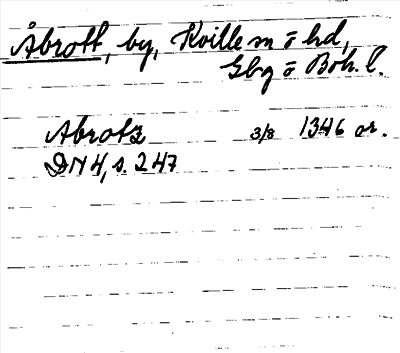 Åbrott, by, Kville sn o hd,
Gbg o Boh. l.
Abrotz 3/8 1346 or.
DN 4, s. 247